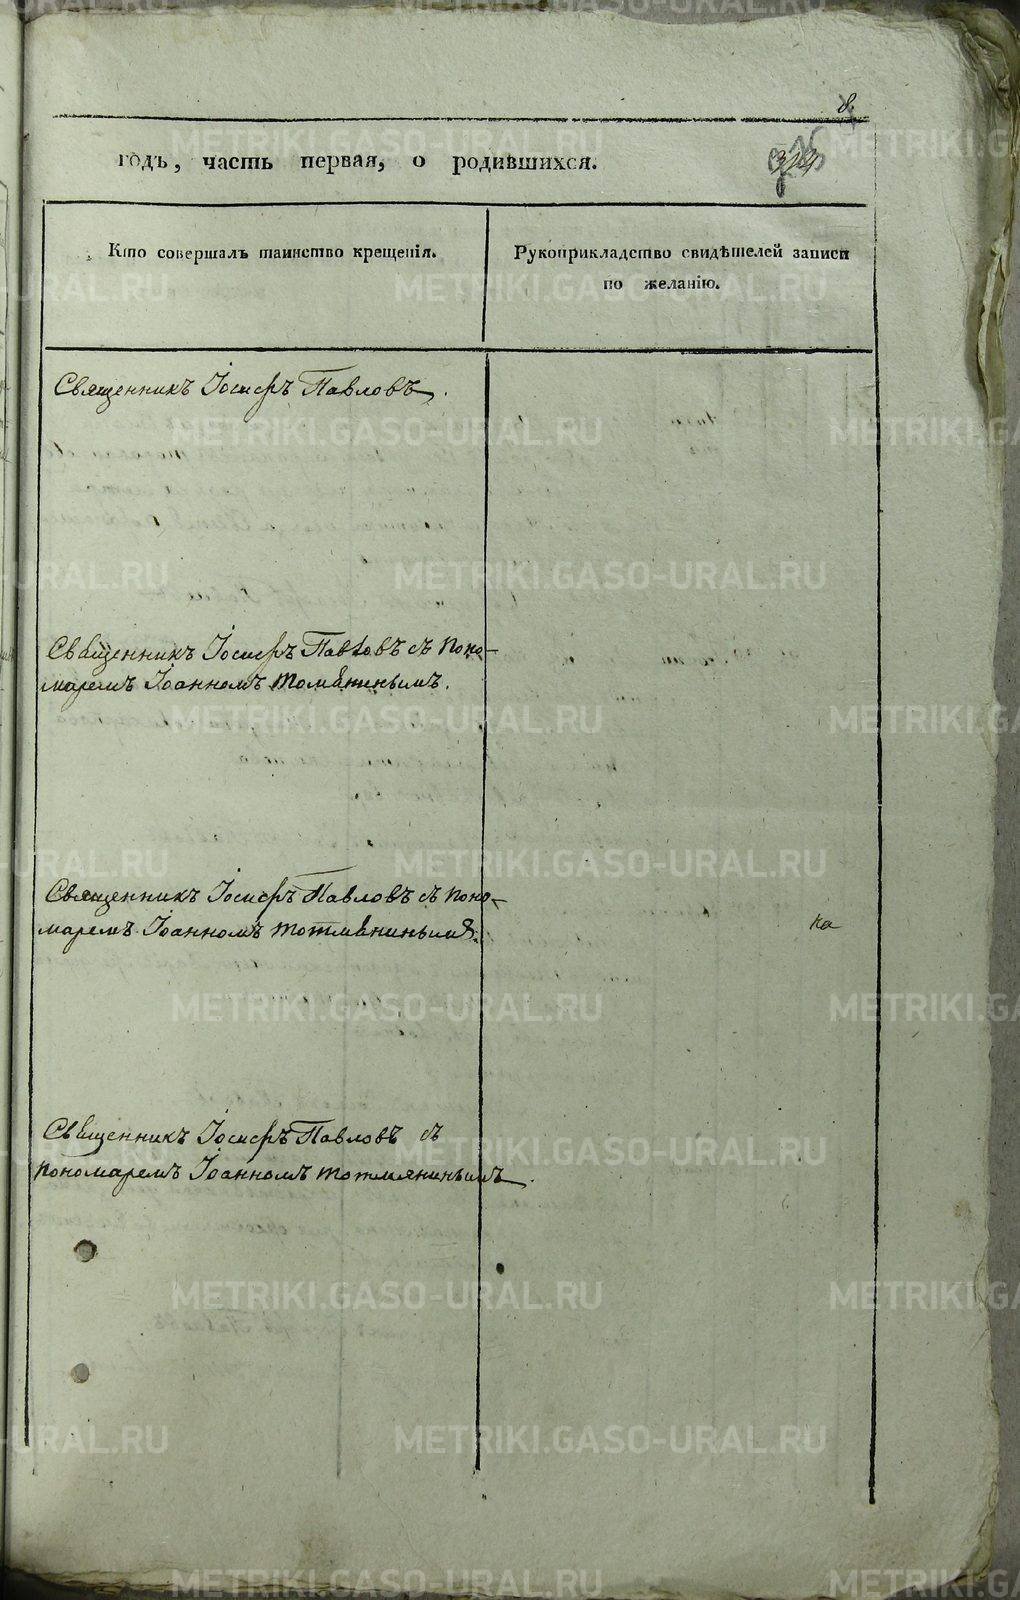 8
годъ, часть первая, о родившихся.
Кто совершалъ таинство крещенія.
Рукоприкладство свидѣтелей записи
по желанію.
Священникъ Іосифъ Павловъ.
Священникъ Іосифъ Павловъ съ поно-
маремъ Іоанномъ
Священникъ Іосифъ Павловъ съ поно-
маремъ Іоанномъ тотмѣнинымъ.
ка
Священникъ Іосифъ Павловъ съ
пономаремъ Іоанномъ тотмянинымъ.
METRIKI.GASO-URAL.RU